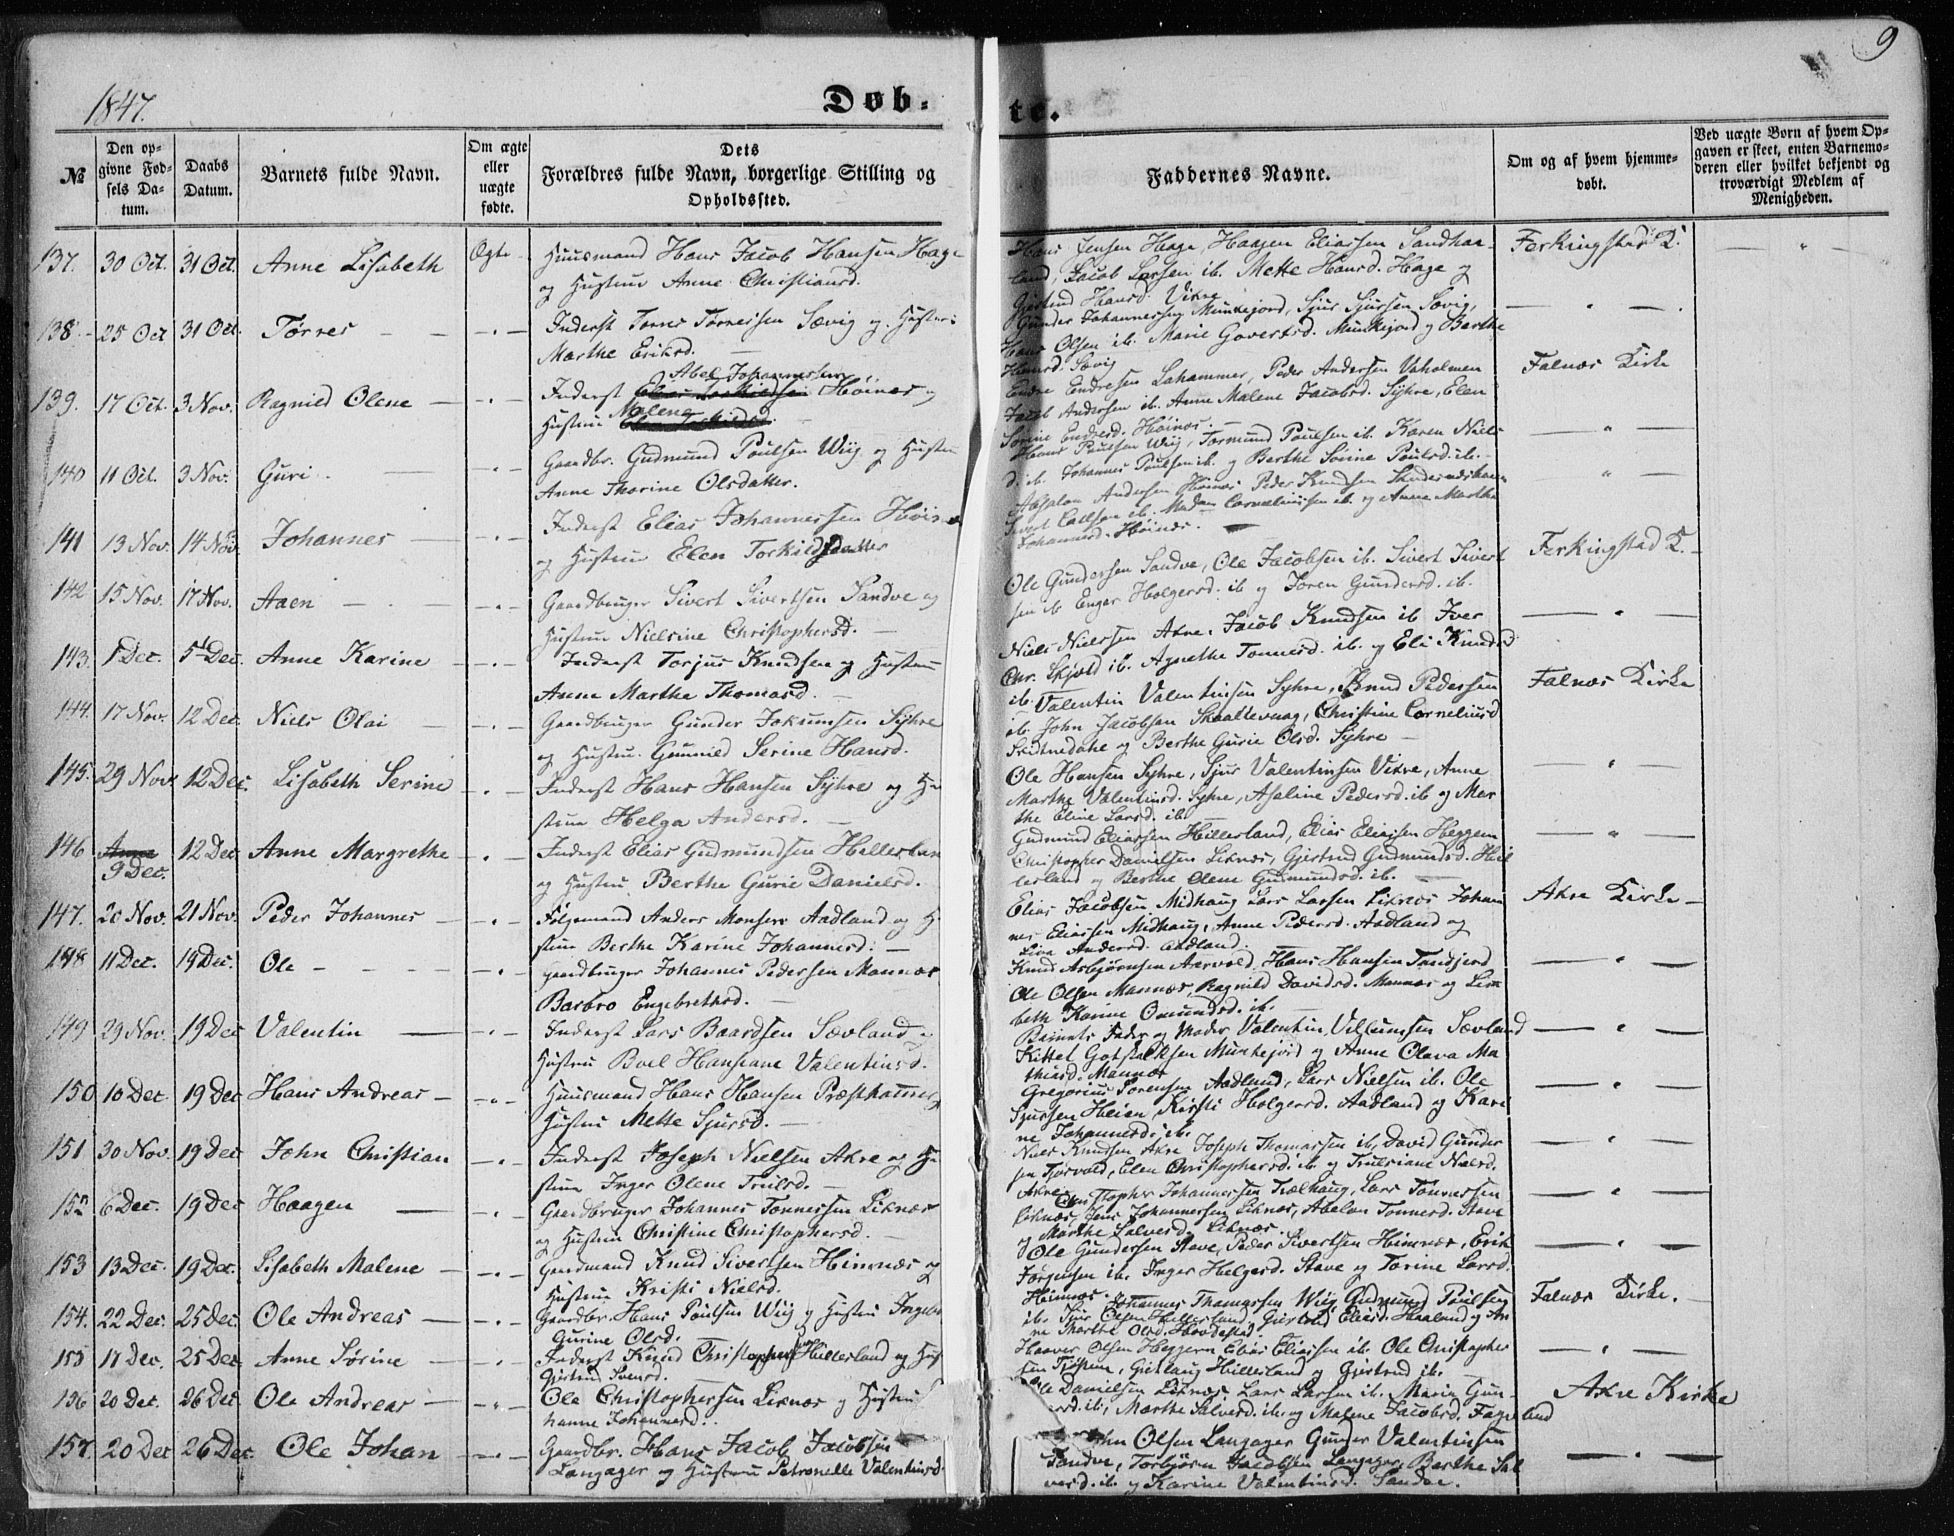 1847.
Døb-
te.
9
№
Den op-
givne Fød-
sels Da-
tum.
Daabs
Datum.
Barnets fulde Navn.
Om ægte
eller
uægte
fødte.
Dets
Forældres fulde Navn, borgerlige Stilling og
Opholdssted.
Faddernes Navne.
Om og af hvem hjemme-
døbt.
Ved uægte Børn af hvem Op-
gaven er skeet, enten Barnemo-
deren eller hvilket bekjendt og
troværdigt Medlem af
Menigheden.
137. 30 Oct. 31 Oct. Anne Lisabeth Ægte Huusmand Hans Jacob Hansen Hage
og Hustrue Anne Christiansd.
Hans Jensen Hage, Haagen Eliassen Sandhaa- Ferkingstad K.
land, Jacob Larsen ib. Mette Hansd. Hage og
Gjertrud Hansd. Vikre
138. 25 Oct 31 Oct. Tørres Inderst Tørres Tørressen Sævig og Hustrue
Marthe Eriksd.
Gunder Johannessen Munkejord, Sjur Sjursen Sævig,
Hans Olsen ib. Marie Govertsd. Munkejord og Berthe
Hansd. Sævig
139. 17 Oct. 3 Nov. Ragnild Olene Abel Johannessen
Inderst Elias Torkildsen Høines og
Malene
Hustrue Elen Torkildsd.
Endre Endresen Lahammer, Peder Andersen Vaholmen Falnæs Kirke
Jacob Andersen ib. Anne Malene Jacobsd. Syhre, Elen
Serine Endresd. Høines.
140 11 Oct. 3 Nov. Guri Gaardbr. Gudmund Poulsen Wiig og Hustru
Anne Thorine Olsdatter.
Hans Poulsen Wiig, Tormund Poulsen ib. Karen Niels
d. ib. Johannes Poulsen ib. og Berthe Sørine Poulsd. ib.
141 13 Nov. 14 Nov. Johannes Inderst Elias Johannessen Høines
og Hustrue Elen Torkildsdatter
Absalon Andersen Høines Peder Knudsen
Sivert Carlsen ib. Madam Corneliussen ib. og Anne Marthe
Johannesd. Høines.
142 15 Nov. 17 Nov. Aaen Gaardbruger Sivert Sivertsen Sandve og
Hustrue Nielsine Christophersd.
Ole Gundersen Sandve, Ole Jacobsen ib. Sivert Sivert Ferkingstad K.
sen ib. Enger Holgersd. ib og Søren Gundersd. ib.
143. 1 Dec. 5 Dec. Anne Karine Inderst Torjus Knudsen og Hustrue
Anne Marthe Thomasd.
Niels Nielsen Akre, Jacob Knudsen ib Iver
Chr. Skjold ib. Agnethe Tonnesd. ib. og Eli Knudsd
ib.
144. 17 Nov. 12 Dec. Niels Olai Gaardbruger Gunder Jokumsen Syhre
og Hustrue Gunnild Serine Hansd.
Valentin Valentinsen Syhre, Knud Pedersen Falnæs Kirke
ib. John Jacobsen Skaaltevaag, Christine Corneliusd
Skitnedahe og Berthe Gurie Olsd. Syhre
145. 29 Nov. 12 Dec. Lisabeth Serine Inderst Hans Hansen Syhre og Hu
strue Helga Andersd.
Ole Hansen Syhre, Sjur Valentinsen Vikre, Anne
Marthe Valentinsd. Syhre, Aseline Pedersd. ib og Mar
the Eline Larsd. ib
146 9 Dec. 12 Dec Anne Margrethe Inderst Elias Gudmundsen Hillerland
og Hustrue Berthe Gurie Danielsd.
Gudmund Eliassen Hillerland, Elias Eliassen Heggem
Christopher Danielsen Liknes, Gjertrud Gudmundsd. Hil
lerland og Berthe Olene Gudmundsd. ib.
147. 20 Nov. 21 Nov. Peder Johannes Følgemand Anders Monsen Aadland og Hu
strue Berthe Karine Johannesd.
Elias Jacobsen Midhaug Lars Larsen Liknes Johan Akre Kirke
nes Eliassen Midhaug, Anne Pedersd. Aadland og
Liva Andersd. Aadland.
148 11 Dec. 19 Dec. Ole Gaardbruger Johannes Pedersen Mannes
Barbro Engebrethsd.
Knud Asbjørnsen Aarvold, Hans Hansen Tandjerd
Ole Olsen Mannes, Ragnild Davidsd. Mannes og Lisa
beth Karine Omundsd. ib.
149 29 Nov. 19 Dec Valentin Inderst Lars Baardsen Sævland og
Hustru Boel Hansiane Valentinsd.
Barnets Fader og Moder Valentin Villumsen Sævland
Kittel Gotskalksen Munkejord og Anne Olava Ma
thiasd. Mannes
150 10 Dec 19 Dec Hans Andreas Huusmand Hans Hansen Præsthammer,
Hustru Mette Sjursd.
Gregorius Sørensen Aadland, Lars Nielsen ib. Ole
Sjursen Heien, Kirsti Holgersd. Aadland og Kari
ne Johannesd. ib.
151 30 Nov. 19 Dec John Christian Inderst Joseph Nielsen Akre og Hu
strue Inger Olene Trulsd.
Niels Knudsen Akre Joseph Thomassen ib. David Gunder
sen Tjøsvold, Elen Christophersd. ib. og Trulsiane Nielsd.
Akre
152 6 Dec. 19 Dec Haagen Gaardbruger Johannes Tonnessen Liknes
og Hustrue Christine Christophersd.
Christopher Johannessen Trælhaug, Lars Tonnessen
Liknes, Jens Johannessen Liknes, Abelon Tonnesd. Stave
og Marthe Salvesd. Liknes.
153 13 Dec. 19 Dec. Lisabeth Malene Gaardmand Knud Sivertsen Hinnæs og
Hustrue Kristi Nielsd.
Ole Gundersen Stave, Peder Sivertsen Hinnes, Erik
Jørgensen ib. Inger Helgesd. Stave og Torine Larsd.
Heimnes.
154. 22 Dec. 25 Dec. Ole Andreas Gaardbr. Hans Poulsen Wiig og Hustru Ingebr
Gurine Olsd.
Johannes Thomassen Wiig Gudmund Poulsen Falnæs Kirke.
ib. Sjur Olsen Hillerland, Gjertrud Eliasd. Haaland og An
ne Marthe Olsd. Hovdestad.
155 17 Dec. 25 Dec. Anne Sørine Inderst Knud Christophersen Hillerland og Hus
Gjertrue Svensd.
Haaver Olsen Heggem Elias Eliassen ib. Ole Christopher
sen Tjøsvne, Gutlaug Hillerland og Gjertrud ib.
156 20 Dec. 26 Dec Ole Andreas Ole Christophersen Liknes og Hustru
hanne Johannesd.
Ole Danielsen Liknes Lars Larsen ib. Maria Gun- Akre Kirke
ersd. ib., Marthe Salvesd. ib. og Malene Jacobsd. Fageland
157. 20 Dec 26 Dec. Ole Johan Gaardbr. Hans Jacob Jacobsen
Langager og Hustrue Petronelle Valentinsd.
hn Olsen Langager Gunder Valentinsen
Sandve, Torbjørn Jacobsen Langager, Berthe Sal
vesd. ib. og Karine Valentinsd. Sandve.